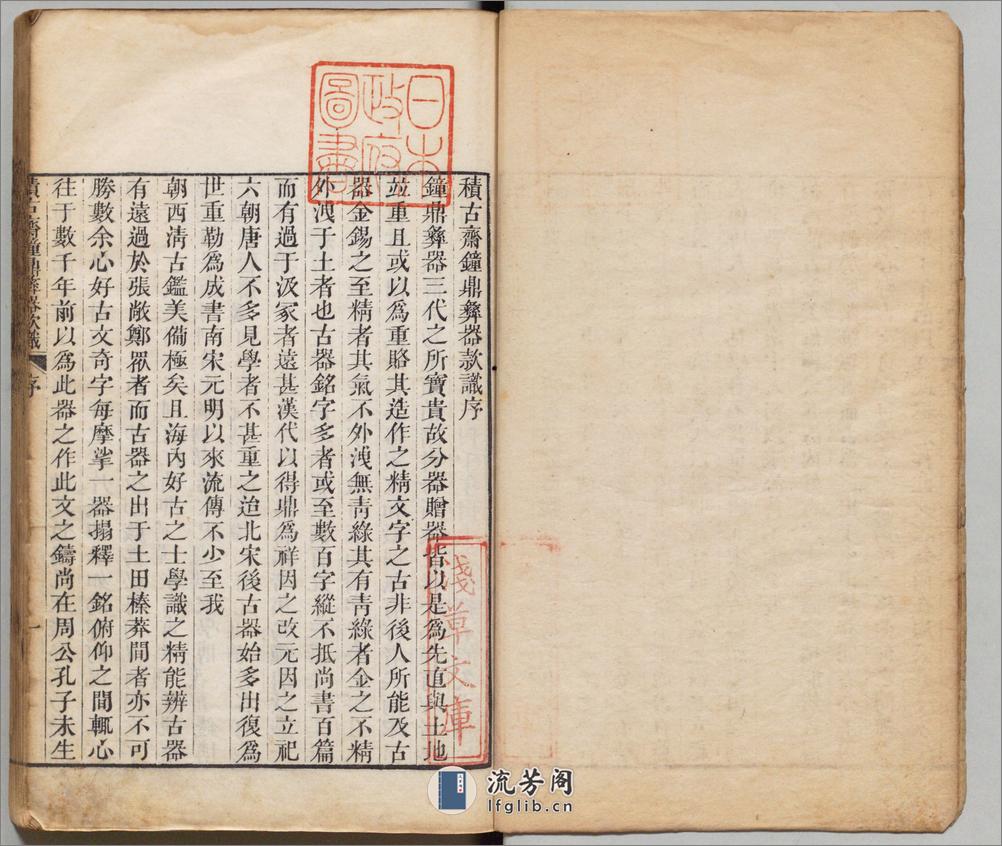 積古齋鐘鼎彝器款識序
鐘鼎彝器三代之所寶貴故分器贈器皆以是爲先直與土地
並重且或以爲重賂其造作之精文字之古非後人所能及古
器金錫之至精者其氣不外洩無青綠其有青綠者金之不精
外洩于土者也古器銘字多者或至數百字縱不抵尚書百篇
而有過于汲冢者遠甚漢代以得鼎爲祥因之改元因之立祀
六朝唐人不多見學者不甚重之迨北宋後古器始多出復爲
世重勒爲成書南宋元明以來流傳不少至我
朝西清古鑑美備極矣且海內好古之士學識之精能辨古器
有遠過於張敞鄭眾者而古器之出于土田榛莽間者亦不可
勝數余心好古文奇字每摩挲一器搨釋一銘俯仰之間輒心
往于數千年前以爲此器之作此文之鑄尚在周公孔子未生
積古齋鐘鼎彝器款識
序
一
日本
政府
圖書
淺草文庫
流芳阁
lfglib.cn